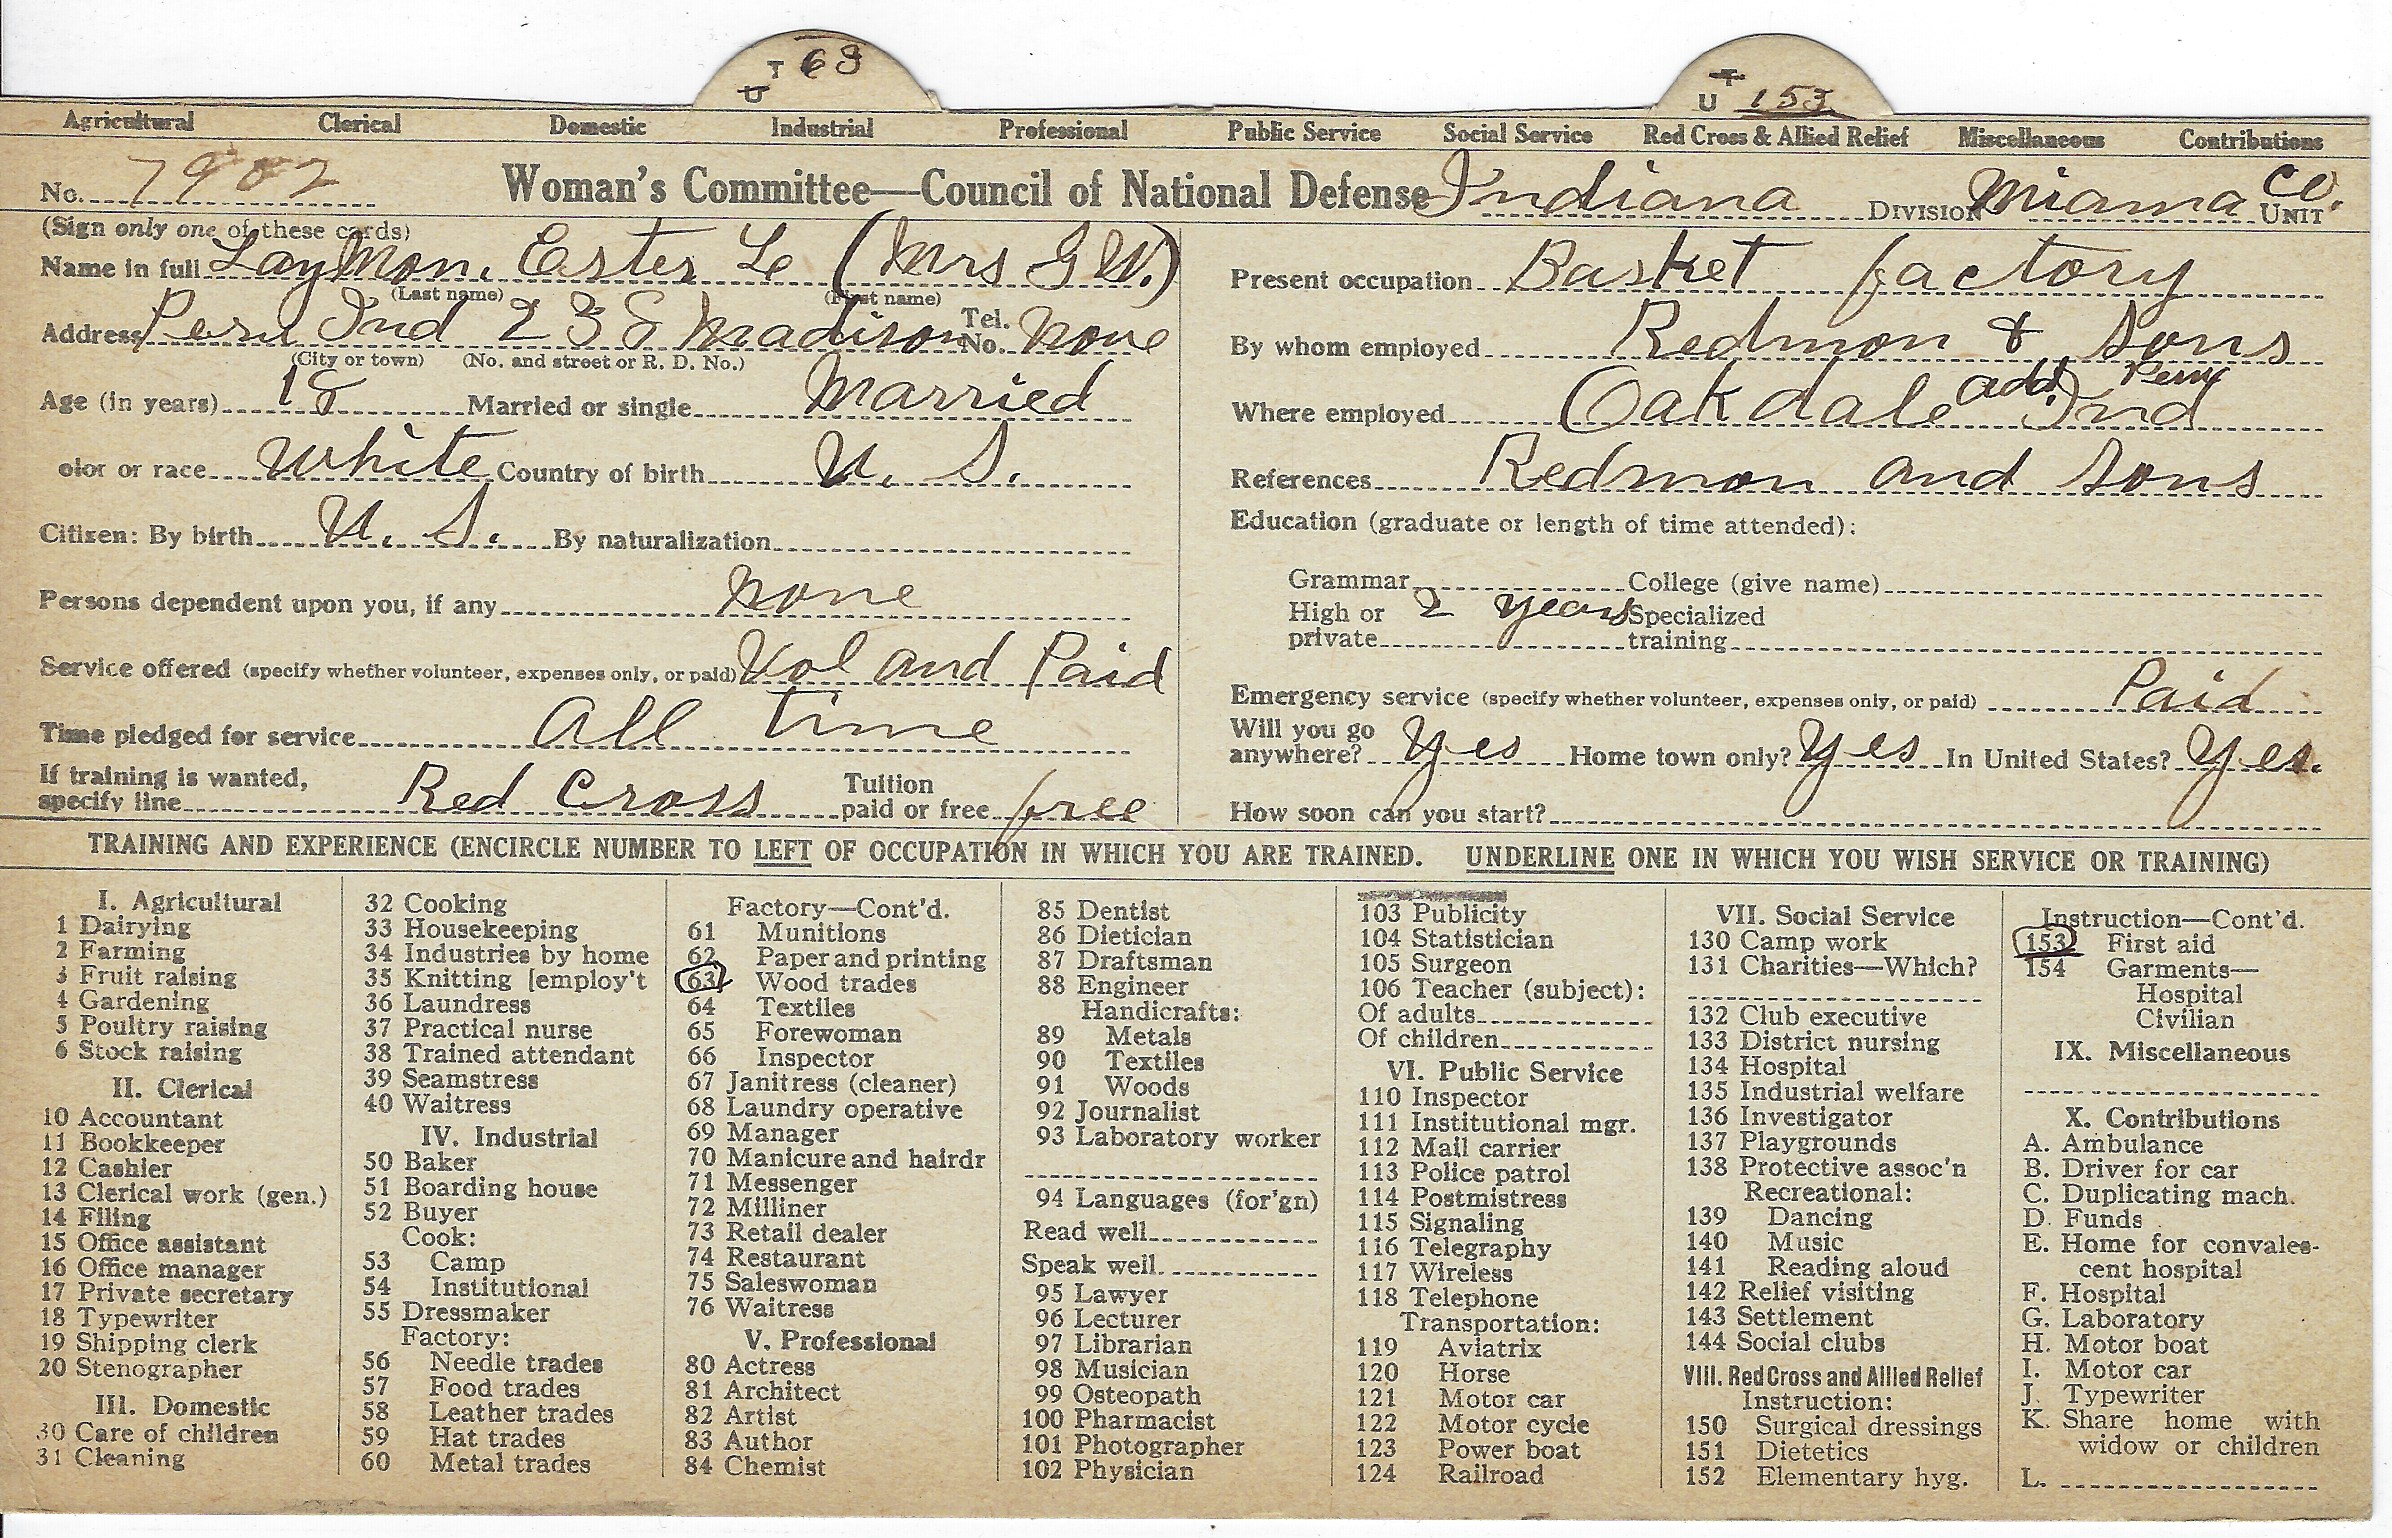 T 63
U
T
U 153
Agricultural Clerical Domestic Industrial Professional Public Service Social Service Red Cross & Allied Relief Miscellaneous Contributions
No. 7902 Woman's Committee—Council of National Defense Indiana DIVISION Miama Co. UNIT
(Sign only one of these cards)
Name in full Laymon, Ester Le (Mrs G W.)
(Last name) (First name)
Address Peru Ind 238 Madison Tel. No. None
(City or town) (No. and street or R. D. No.)
Age (in years) 18 Married or single Married
olor or race White Country of birth U. S.
Citizen: By birth U. S. By naturalization
Persons dependent upon you, if any none
Service offered (specify whether volunteer, expenses only, or paid) Vol and Paid
Time pledged for service All time
If training is wanted, specify line Red Cross Tuition paid or free free
Present occupation Basket factory
By whom employed Redmon & Sons
Where employed Oakdale add. Peru Ind
References Redmon and Sons
Education (graduate or length of time attended):
Grammar College (give name)
High or private 2 years Specialized training
Emergency service (specify whether volunteer, expenses only, or paid) Paid
Will you go anywhere? Yes Home town only? Yes In United States? Yes.
How soon can you start?
TRAINING AND EXPERIENCE (ENCIRCLE NUMBER TO LEFT OF OCCUPATION IN WHICH YOU ARE TRAINED. UNDERLINE ONE IN WHICH YOU WISH SERVICE OR TRAINING)
I. Agricultural
1 Dairying
2 Farming
3 Fruit raising
4 Gardening
5 Poultry raising
6 Stock raising
II. Clerical
10 Accountant
11 Bookkeeper
12 Cashier
13 Clerical work (gen.)
14 Filing
15 Office assistant
16 Office manager
17 Private secretary
18 Typewriter
19 Shipping clerk
20 Stenographer
III. Domestic
30 Care of children
31 Cleaning
32 Cooking
33 Housekeeping
34 Industries by home
35 Knitting [employ't
36 Laundress
37 Practical nurse
38 Trained attendant
39 Seamstress
40 Waitress
IV. Industrial
50 Baker
51 Boarding house
52 Buyer
Cook:
53 Camp
54 Institutional
55 Dressmaker
Factory:
56 Needle trades
57 Food trades
58 Leather trades
59 Hat trades
60 Metal trades
Factory—Cont'd.
61 Munitions
62 Paper and printing
63 Wood trades
64 Textiles
65 Forewoman
66 Inspector
67 Janitress (cleaner)
68 Laundry operative
69 Manager
70 Manicure and hairdr
71 Messenger
72 Milliner
73 Retail dealer
74 Restaurant
75 Saleswoman
76 Waitress
V. Professional
80 Actress
81 Architect
82 Artist
83 Author
84 Chemist
85 Dentist
86 Dietician
87 Draftsman
88 Engineer
Handicrafts:
89 Metals
90 Textiles
91 Woods
92 Journalist
93 Laboratory worker
94 Languages (for'gn)
Read well
Speak well
95 Lawyer
96 Lecturer
97 Librarian
98 Musician
99 Osteopath
100 Pharmacist
101 Photographer
102 Physician
103 Publicity
104 Statistician
105 Surgeon
106 Teacher (subject):
Of adults
Of children
VI. Public Service
110 Inspector
111 Institutional mgr.
112 Mail carrier
113 Police patrol
114 Postmistress
115 Signaling
116 Telegraphy
117 Wireless
118 Telephone
Transportation:
119 Aviatrix
120 Horse
121 Motor car
122 Motor cycle
123 Power boat
124 Railroad
VII. Social Service
130 Camp work
131 Charities—Which?
132 Club executive
133 District nursing
134 Hospital
135 Industrial welfare
136 Investigator
137 Playgrounds
138 Protective assoc'n
Recreational:
139 Dancing
140 Music
141 Reading aloud
142 Relief visiting
143 Settlement
144 Social clubs
VIII. Red Cross and Allied Relief
Instruction:
150 Surgical dressings
151 Dietetics
152 Elementary hyg.
Instruction—Cont'd.
153 First aid
154 Garments—
Hospital
Civilian
IX. Miscellaneous
X. Contributions
A. Ambulance
B. Driver for car
C. Duplicating mach.
D. Funds
E. Home for convales-
cent hospital
F. Hospital
G. Laboratory
H. Motor boat
I. Motor car
J. Typewriter
K. Share home with
widow or children
L.